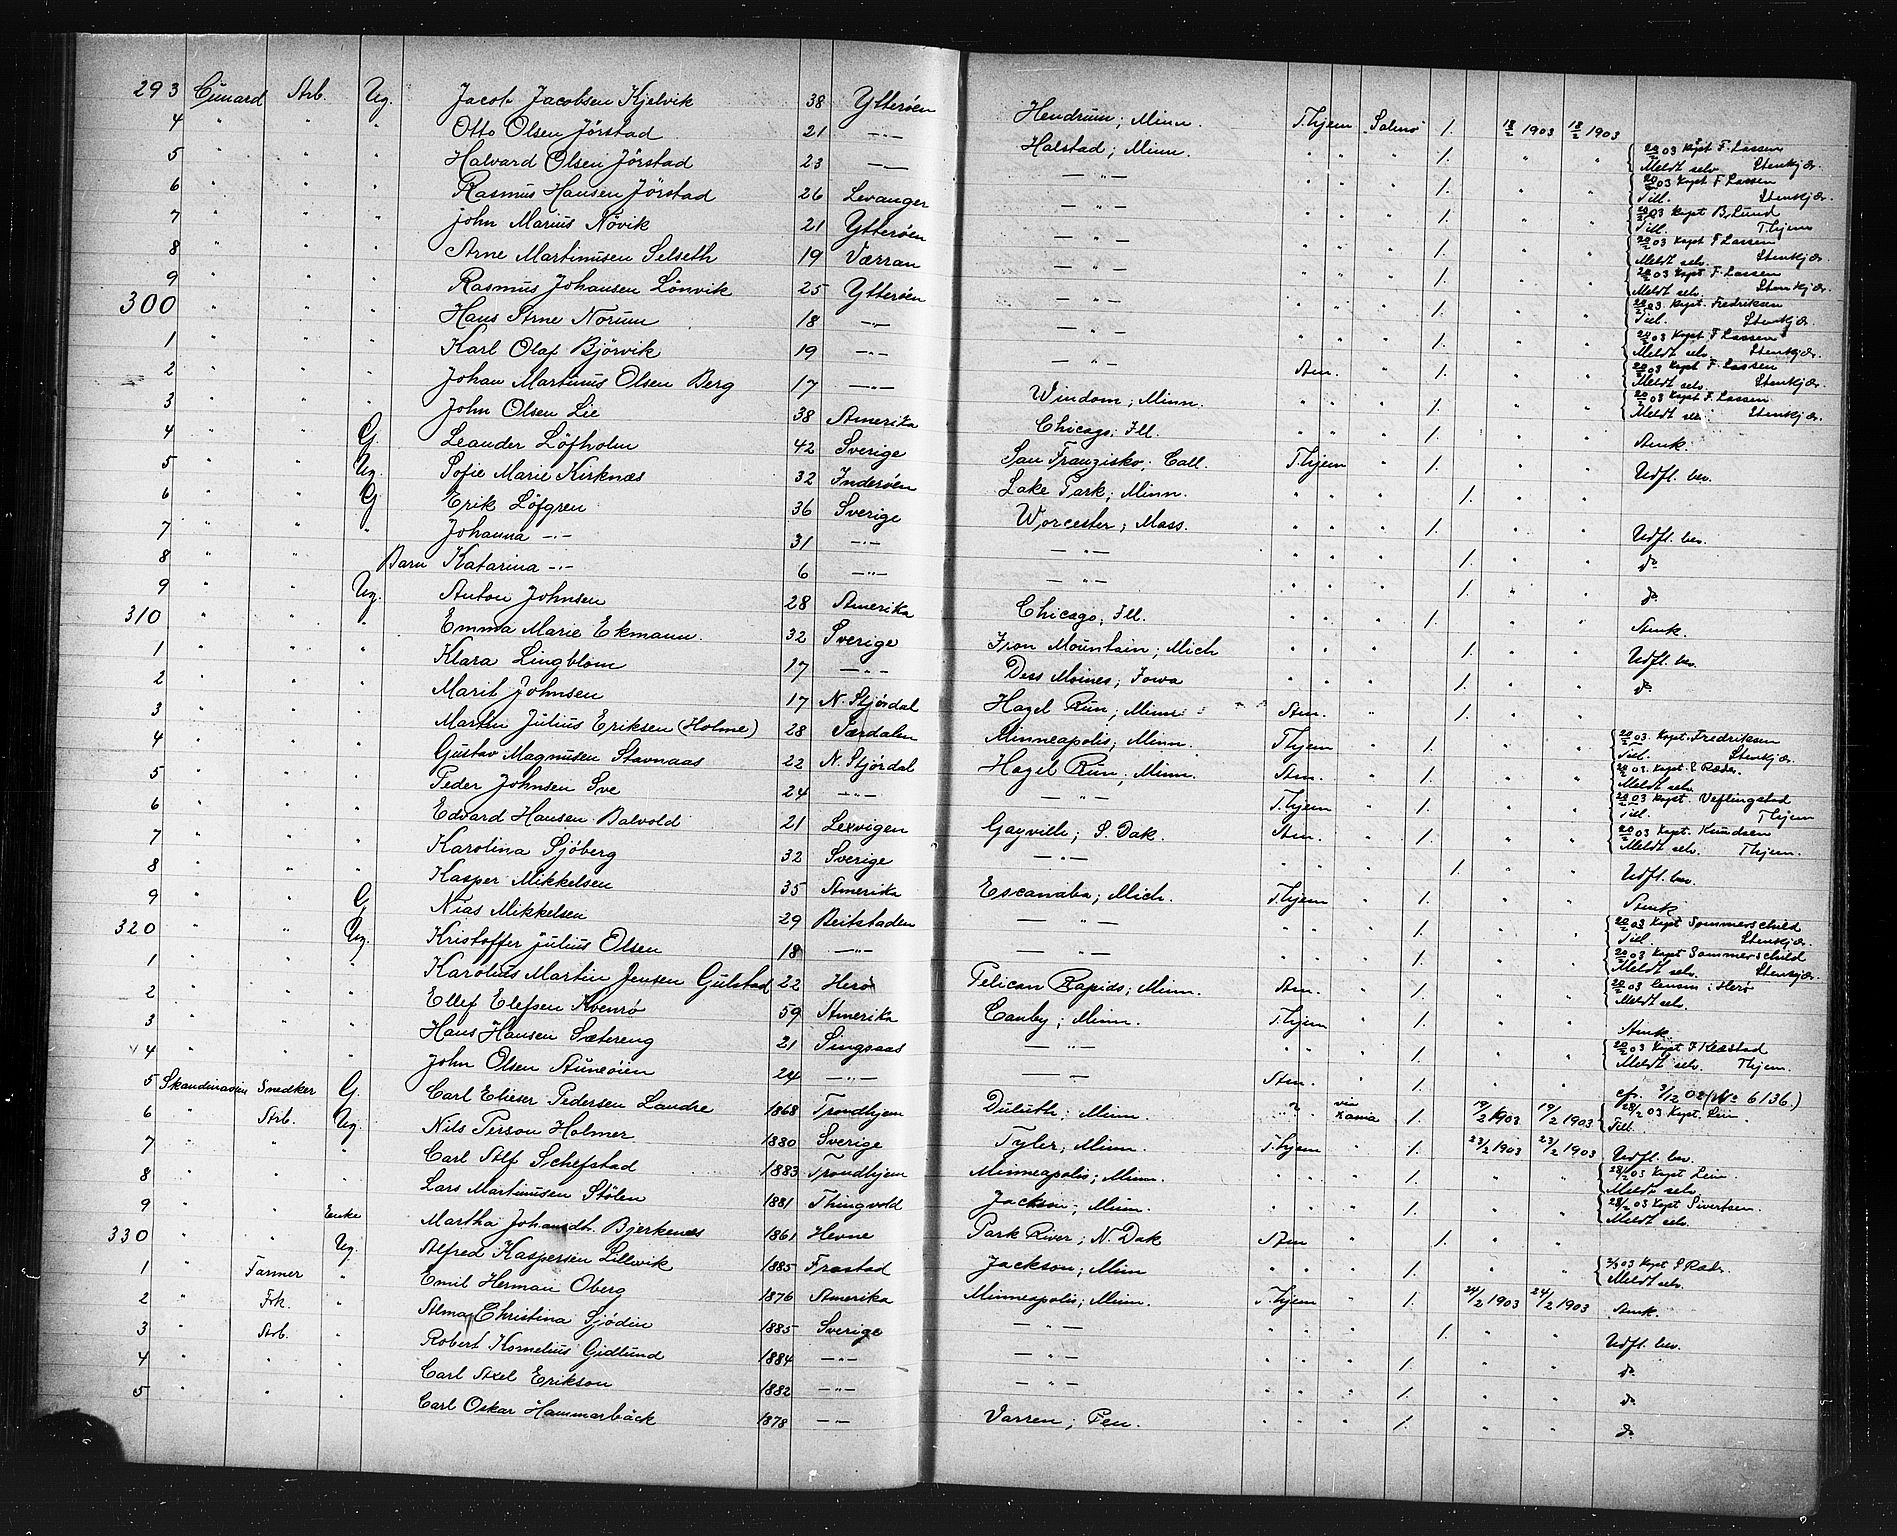 293 Cunard Arb. Ug. Jacob Jacobsen Kjelvik 38 Ytterøen Hendrum; Minn. T.hjem Salmo 1. 18/2 1903 18/2 1903
4 " " " Otto Olsen Jörstad 21 —"— Halstad; Minn. " " " 1. " " 20/2 03 Kapt F. Lassen Meldt selv. Stenkjær.
5 " " " Halvard Olsen Jörstad 23 —"— —"— " " " 1. " " 20/2 03 Kapt F Lassen Till. Stenkjær.
6 " " " Rasmus Hansen Jörstad 26 Levanger —"— " " " 1. " " 20/2 03 Kapt B. Lund Till. T.hjem
7 " " " John Marius Növik 21 Ytterøen —"— " " " 1. " " 20/2 03 Kapt F Lassen Meldt selv. Stenkjær.
8 " " " Arne Martinusen Selseth 19 Værran —"— " " " 1. " " 20/2 03 Kapt F. Lassen Meldt selv. Stenkjær.
9 " " " Rasmus Johansen Lönvik 25 Ytterøen —"— " " " 1. " " 20/2 03. Kapt. Fredriksen Till. Stenkjær.
300 " " " Hans Arne Norum 18 —"— —"— " " " 1. " " 20/2 03 Kapt F Lassen Meldt selv Stenkjær.
1 " " " Karl Olaf Björvik 19 —"— —"— Am. " " 1. " " 20/2 03 Kapt F. Lassen Meldt selv. Stenkjær.
2 " " " Johan Martinus Olsen Berg 17 —"— Windom; Minn. " " " 1. " " 20/2 03 Kapt F. Lassen Meldt selv Stenkjær.
3 " " " John Olsen Lie 38 Amerika Chicago; Ill. " " " 1. " " Amk.
4 " " G. Leander Löfholm 42 Sverige San Franzisko; Call. T.hjem " 1. " " Udfl. bev.
5 " " Ug. Sofie Marie Kirknæs 32 Inderøen Lake Park; Minn. " " " 1. " "
6 " " G Erik Löfgren 36 Sverige Worcester; Mass. " " " 1. " " Udfl. bev.
7 " " " Johanna —"— 31 —"— —"— " " " 1. " " do
8 " " Barn Katarina —"— 6 —"— —"— " " " 1. " " do
9 " " Ug. Anton Johnsen 28 Amerika Chicago; Ill. " " " 1. " " Amk.
310 " " " Emma Marie Ekmann. 32 Sverige Iron Mountain; Mich " " " 1. " " Udfl. bev.
1 " " " Klara Lingblom 17 —"— Dess Moines; Iowa " " " 1. " " do
2 " " " Marit Johnsen 17 N. Stjørdal Hazel Run; Minn Am. " 1. " "
3 " " " Martin Julius Eriksen (Holme) 28 Færdalen Minneapolis; Minn. T.hjem " 1. " " 20/2 03. Kapt. Fredriksen Till. Stenkjær.
4 " " " Gustav Magnusen Stavnaas 22 N. Stjørdal Hazel Run; Minn. Am. " 1. " " 20/2 03. Kapt. E Ræder. Meldt selv
5 " " " Peder Johnsen Sve 24 —"— —"— T.hjem " 1. " " 20/2 03 Kapt. Veflingstad Till. T.hjem
6 " " " Edvard Hansen Balvold 21 Lexvigen Gayville; S. Dak. Am. " 1. " " 20/2 03 Kapt. Knudsen Meldt selv. Thjem.
7 " " " Karolina Sjöberg 32 Sverige —"— " " " 1. " " Udfl. bev.
8 " " " Kasper Mikkelsen 35 Amerika Escanaba; Mich. T.hjem " 1. " " Amk
9 " " G Nias Mikkelsen 29 Beitstaden —"— " " " 1. " " 20/2 03 Kapt Sommerschild Till. Stenkjær.
320 " " Ug. Kristoffer Julius Olsen 18 —"— —"— " " " 1. " " 20/2 03 Kapt Sommerschild Meldt selv. Stenkjær.
1 " " " Karolius Martin Jensen Gulstad 22 Herø Pelican Rapids; Minn. Am. " 1. " " 20/2 03 Herø Meldt selv.
2 " " " Ellef Elefsen Kvenrö 59 Amerika Canby; Minn. T.hjem " 1. " " Amk
3 " " " Hans Hansen Sætereng 21 Singsaas —"— " " " 1. " " 20/2 03 Kapt Meldt selv. Thjem.
4 " " " John Olsen Auneöien 24 —"— —"— Am. " 1. " " cfr. 3/12 02 (No 6136.)
5 Skandinavien Snedker G. Carl Elieser Pedersen Landre 1868 Trondhjem Duluth; Minn. " via Xania 1. 19/2 1903 19/2 1903 28/2 03 Kapt. Lein Till.
6 " Arb. Ug. Nils Person Holmer 1880 Sverige Tyler; Minn. T.hjem " 1. 23/2 1903 23/2 1903 Udfl. bev.
7 " " " Carl Alf Schefstad 1883 Trondhjem Minneapolis; Minn. " " " 1. " " 28/2 03 Kapt Lein Meldt selv.
8 " " " Lars Martinusen Stölen 1881 Thingvold Jackson; Minn. " " " 1. " " 28/2 03 Kapt Sivertsen. Meldt selv.
9 " " Enke Martha Johansdt. Bjerkenes 1861 Hevne Park River; N. Dak Am " 1. " "
330 " " Ug. Alfred Kaspersen Lillevik 1885 Frostad Jackson; Minn " " " 1. " " 2/3 03 Kapt E Ræder. Meldt selv.
1 " Farmer " Emil Herman Oberg 1876 Amerika Minneapolis; Minn. T.hjem " 1. 24/2 1903 24/2 1903 Amk.
2 " Frk. " Alma Christina Sjödin 1885 Sverige —"— " " " 1. " " Udfl. bev.
3 " Arb. " Robert Kornelius Gidlund 1884 —"— —"— " " " 1. " " do
4 " " " Carl Axel Erikson 1882 —"— —"— " " " 1. " " do
5 " " " Carl Oskar Hammarbäck 1878 —"— Varren; Pen. " " " 1. " " do